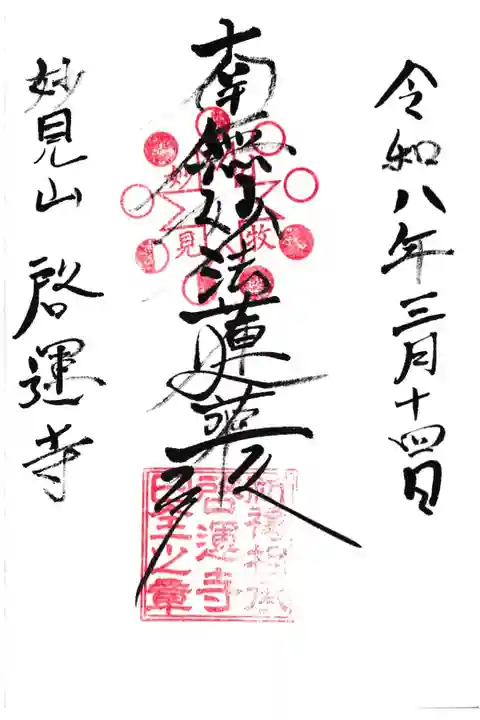 令和八年三月十四日
南無妙法蓮華経
妙見山 啓運寺
牧
妙見
啓運寺